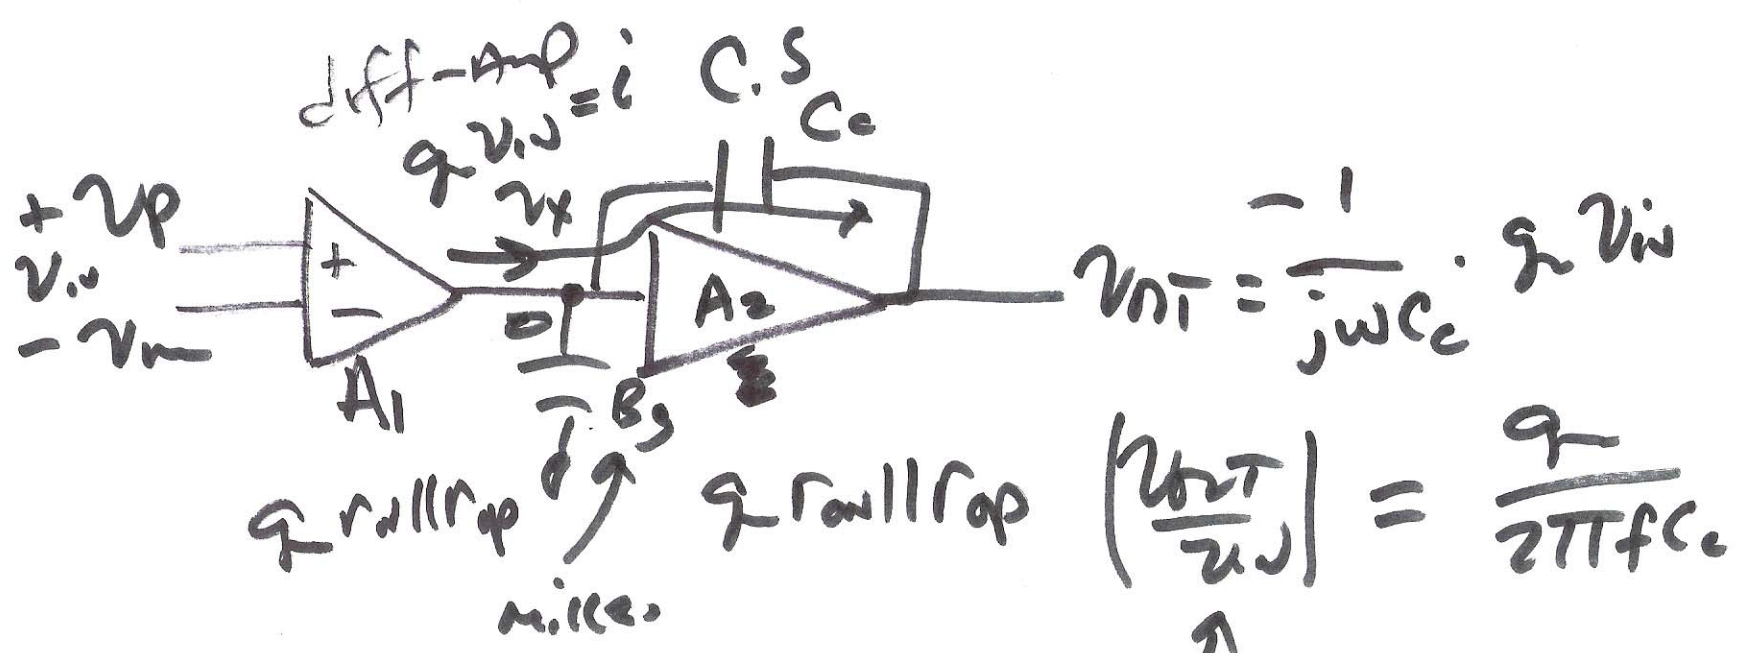 diff-Amp
C.S
g v_in = i
C_c
+ v_p
v_x
v_in
- v_m
+
-
A_1
A_2
v_out = -1/(jωC_c) · g v_in
Big
g r_on||r_op
g r_on||r_op
|v_out/v_in| = g/(2πfC_c)
miller